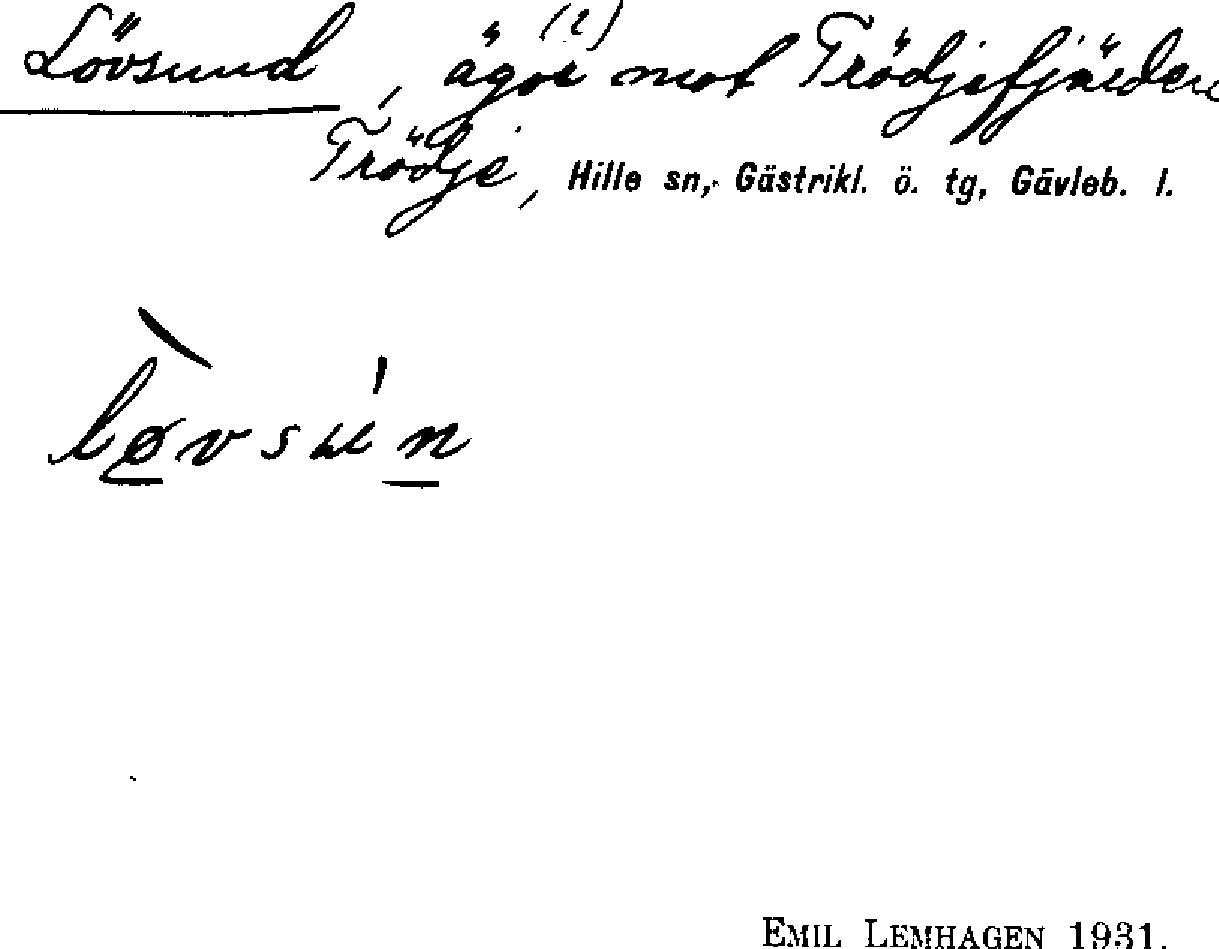 Lövsund, ägor (?) mot Trödjefjärden
Trödje, Hille sn, Gästrikl. ö. tg, Gävleb. l.
løvsun
EMIL LEMHAGEN 1931.